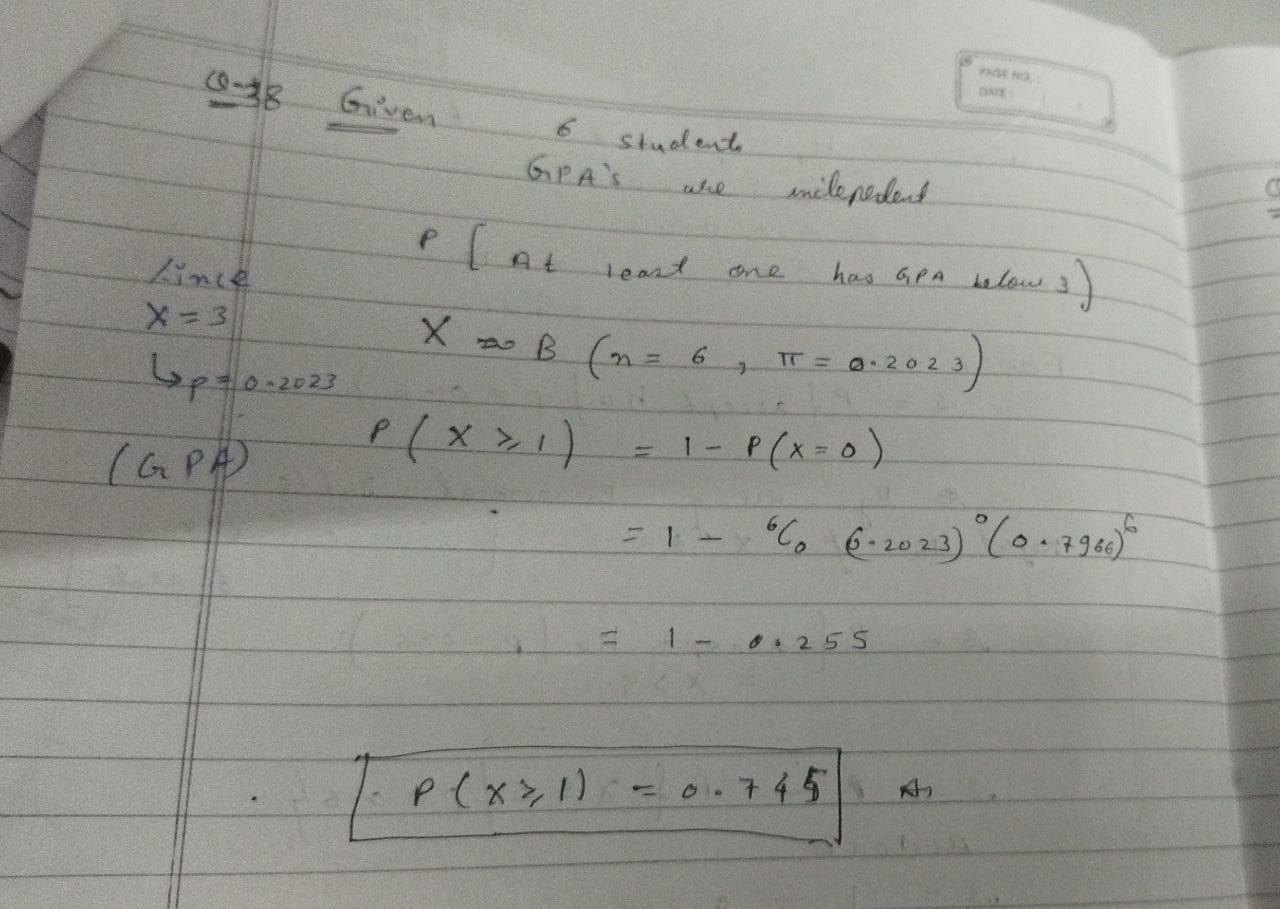 Q-38 Given 6 students
GPA's are indepedent
P [ At least one has GPA below 3)
Since
X = 3
↳ p = 0.2023
(GPA)
X ~ B (n = 6 , π = 0.2023)
P ( X ≥ 1 ) = 1 - P(x = 0)
= 1 - ⁶C₀ (0.2023)⁰ (0.7966)⁶
= 1 - 0.255
P(x ≥ 1) = 0.745 As
PAGE NO. :
DATE :